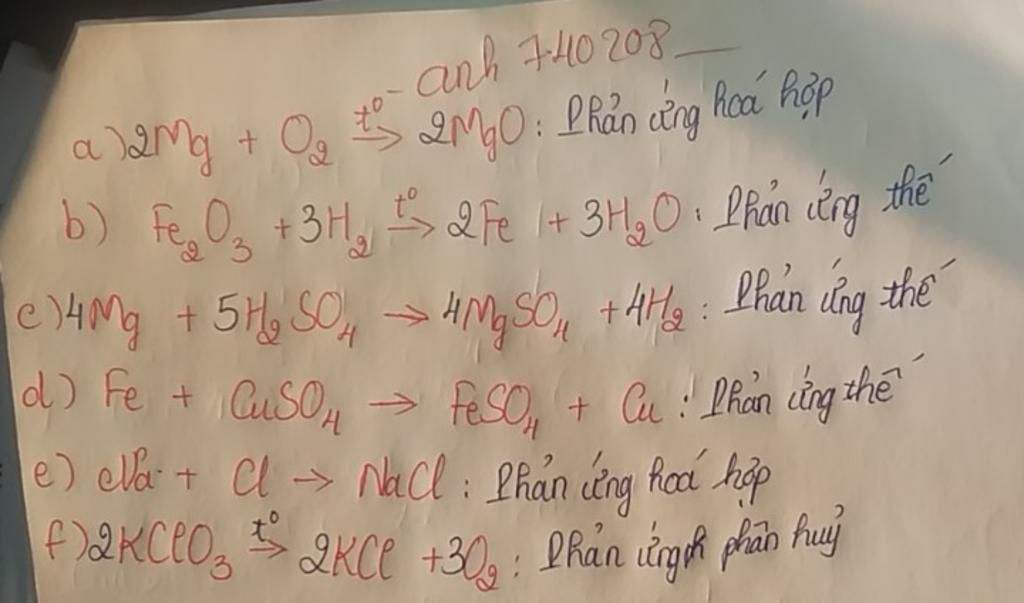 anh 740208
a) 2Mg + O₂ t⁰→ 2MgO : Phản ứng hoá hợp
b) Fe₂O₃ + 3H₂ t⁰→ 2Fe + 3H₂O : Phản ứng thế
c) 4Mg + 5H₂SO₄ → 4MgSO₄ + 4H₂ : Phản ứng thế
d) Fe + CuSO₄ → FeSO₄ + Cu : Phản ứng thế
e) Na + Cl → NaCl : Phản ứng hoá hợp
f) 2KClO₃ t⁰→ 2KCl + 3O₂ : Phản ứng phân huỷ